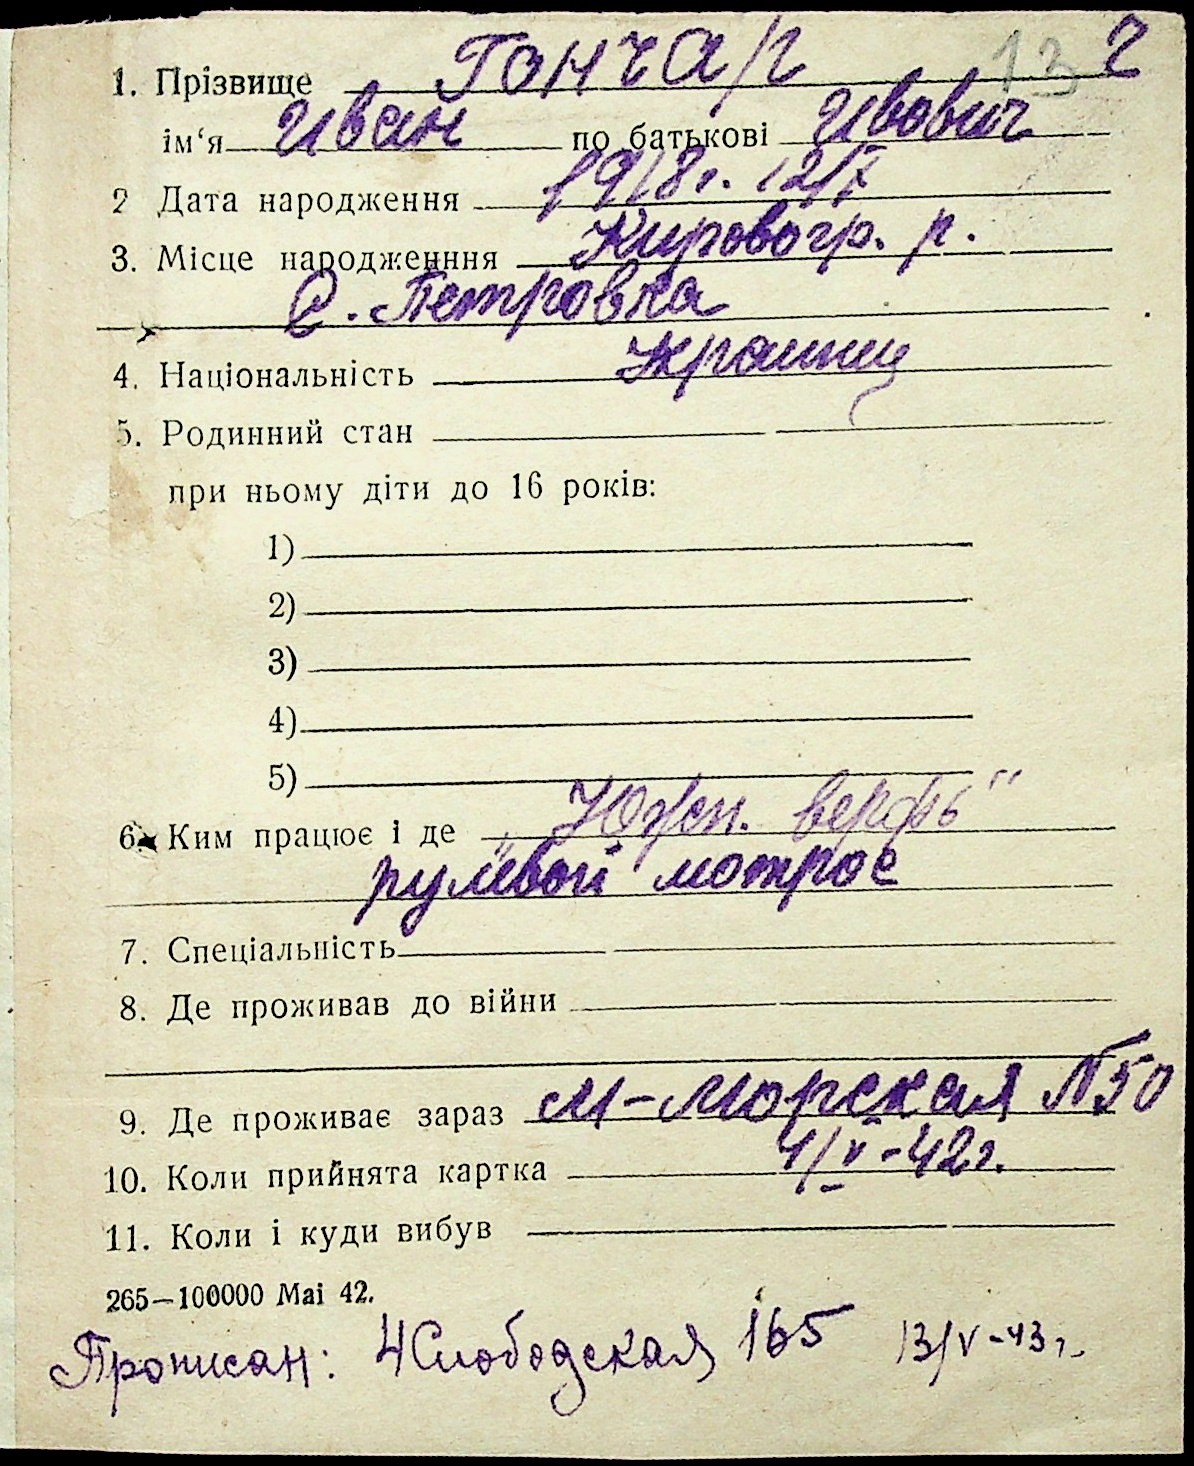 13 2
1. Прізвище Гончар
ім‘я Иван по батькові Ивович
2 Дата народження 1918г. 12/7
3. Місце народженння Кировогр. р.
с. Петровка
4. Національність Украинец
5. Родинний стан
при ньому діти до 16 років:
1)
2)
3)
4)
5)
6. Ким працює і де „Южн. верфь“
рулевой матрос
7. Спеціальність
8. Де проживав до війни
9. Де проживає зараз М-Морская №50
10. Коли прийнята картка 4/V-42г.
11. Коли і куди вибув
265—100000 Mai 42.
Прописан: 4 Слободская 165 13/V-43г.